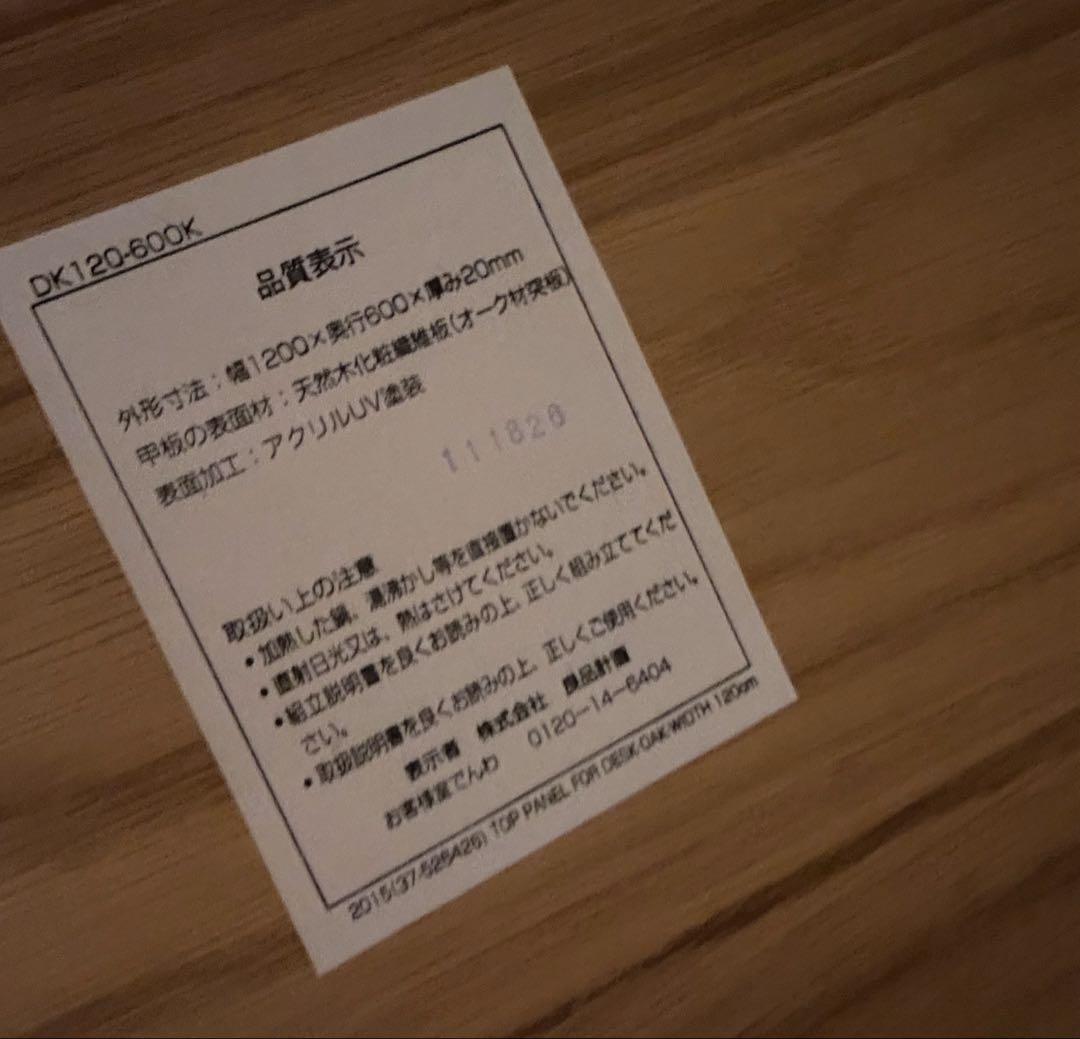 DK120-600K
品質表示
外形寸法：幅1200×奥行600×厚み20mm
甲板の表面材：天然木化粧繊維板(オーク材突板)
表面加工：アクリルUV塗装
111826
取扱い上の注意
・加熱した鍋、湯沸かし等を直接置かないでください。
・直射日光又は、熱はさけてください。
・組立説明書を良くお読みの上、正しく組み立ててくだ
さい。
・取扱説明書を良くお読みの上、正しくご使用ください。
表示者 株式会社 良品計画
お客様室でんわ 0120-14-6404
2015(37-525426) TOP PANEL FOR DESK・OAK・WIDTH 120cm